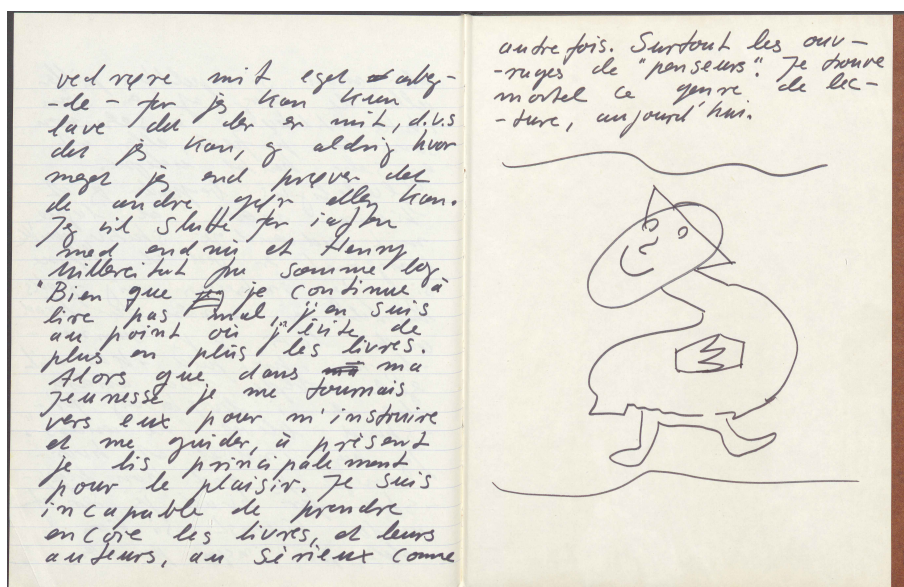 vedrøre mit eget arbej-
-de - for jeg kan kun
lave det der er mit, d.v.s
det jeg kan, og aldrig hvor
meget jeg end prøver det
de andre gør eller kan.
Jeg vil slutte for iaften
med endnu et Henry
Millercitat fra samme bog
"Bien que je continue à
lire pas mal, j'en suis
au point où j'évite de
plus en plus les livres.
Alors que dans ma
Jeunesse je me tournais
vers eux pour m'instruire
et me guider, à présent
je lis principalement
pour le plaisir. Je suis
incapable de prendre
encore les livres, et leurs
auteurs, au sérieux comme
autre fois. Surtout les ouv-
-rages de "penseurs". Je trouve
mortel ce genre de lec-
-ture, aujourd'hui.